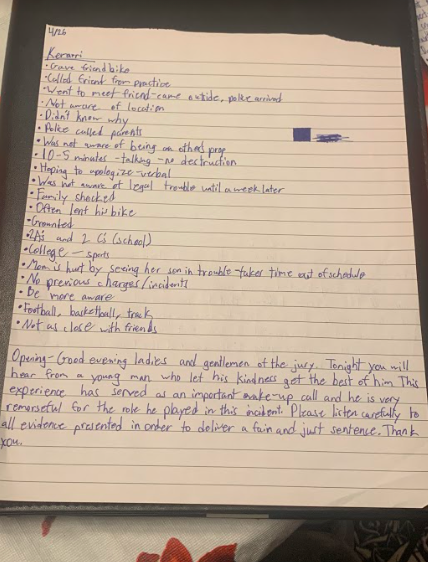 4/26
Kemari
• Gave friend bike
• Called friend from practice
• Went to meet friend - came outside, police arrived
• Not aware of location
• Didn't know why
• Police called parents
• Was not aware of being on others prop
• 10-5 minutes - talking - no destruction
• Hoping to apologize - verbal
• Was not aware of legal trouble until a week later
• Family shocked
• Often lent his bike
• Grounded
• 2A's and 2 C's (school)
• College - sports
• Mom is hurt by seeing her son in trouble - takes time out of schedule
• No previous charges/incidents
• Be more aware
• Football, basketball, track
• Not as close with friends
Opening - Good evening ladies and gentlemen of the jury. Tonight you will
hear from a young man who let his kindness get the best of him. This
experience has served as an important wake-up call and he is very
remorseful for the role he played in this incident. Please listen carefully to
all evidence presented in order to deliver a fair and just sentence. Thank
you.